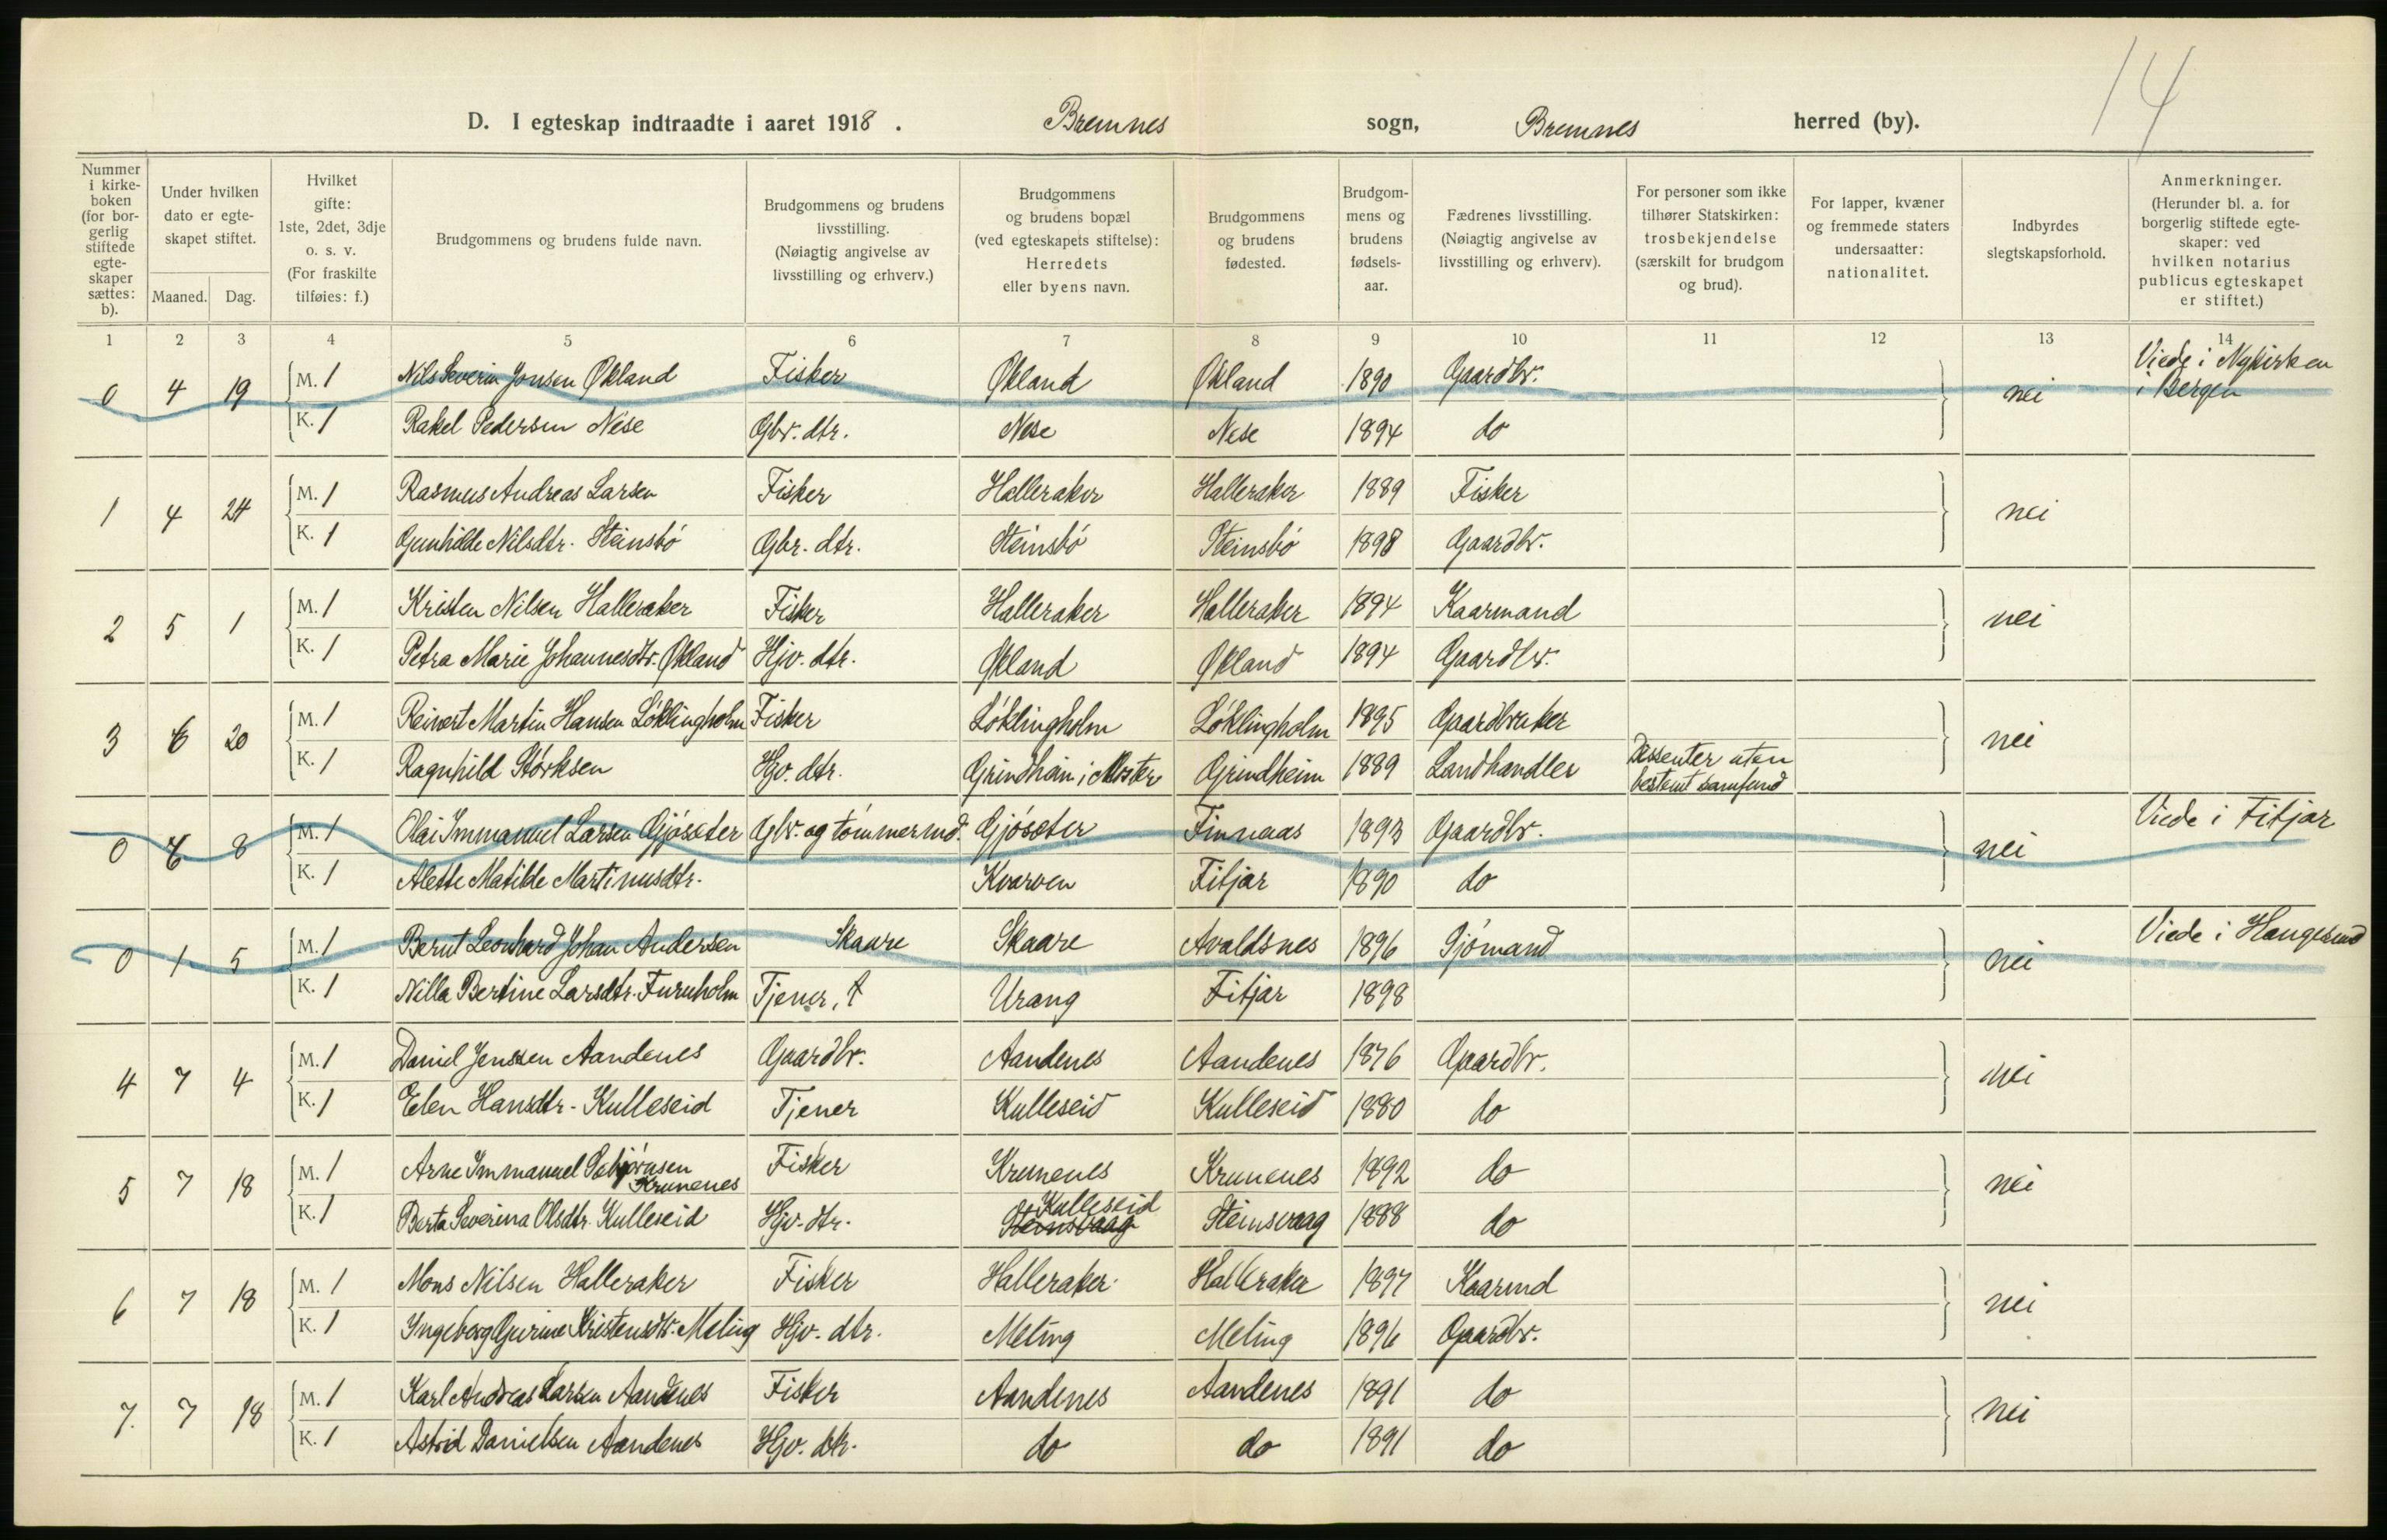 14
D. I egteskap indtraadte i aaret 1918. Bremnes sogn, Bremnes herred (by).
Nummer i kirkeboken (for borgerlig stiftede egteskaper sættes: b).
Under hvilken dato er egteskapet stiftet.
Maaned. Dag.
Hvilket gifte: 1ste, 2det, 3dje o. s. v. (For fraskilte tilføies: f.)
Brudgommens og brudens fulde navn.
Brudgommens og brudens livsstilling. (Nøiagtig angivelse av livsstilling og erhverv.)
Brudgommens og brudens bopæl (ved egteskapets stiftelse): Herredets eller byens navn.
Brudgommens og brudens fødested.
Brudgommens og brudens fødselsaar.
Fædrenes livsstilling. (Nøiagtig angivelse av livsstilling og erhverv).
For personer som ikke tilhører Statskirken: trosbekjendelse (særskilt for brudgom og brud).
For lapper, kvæner og fremmede staters undersaatter: nationalitet.
Indbyrdes slegtskapsforhold.
Anmerkninger. (Herunder bl. a. for borgerlig stiftede egteskaper: ved hvilken notarius publicus egteskapet er stiftet.)
1 2 3 4 5 6 7 8 9 10 11 12 13 14
0 4 19 M. 1 Nils Severin Jonsen Økland Fisker Økland Økland 1890 Gaardbr. nei Viede i Nykirken i Bergen
K. 1 Rakel Pedersen Nese Gbr. dtr. Nese Nese 1894 do
1 4 24 M. 1 Rasmus Andreas Larsen Fisker Halleraker Halleraker 1889 Fisker nei
K. 1 Gunhilde Nilsdtr. Steinsbó Gbr. dtr. Steinsbó Steinsbó 1898 Gaardbr.
2 5 1 M. 1 Kristen Nilsen Halleraker Fisker Halleraker Halleraker 1894 Kaarmand nei
K. 1 Petra Marie Johannesdtr. Økland Hjv. dtr. Økland Økland 1894 Gaardbr.
3 6 20 M. 1 Reinert Martin Hansen Lóklingholm Fisker Lóklingholm Lóklingholm 1895 Gaardbruker nei
K. 1 Ragnhild Størksen Hjv. dtr. Grindheim i Moster Grindheim 1889 Landhandler Dissenter uten bestemt samfund
0 6 8 M. 1 Olai Immanuel Larsen Gjósæter Gbr. og tómmermd. Gjósæter Finnaas 1893 Gaardbr. nei Viede i Fitjar
K. 1 Alette Matilde Martinusdtr. Kvarven Fitjar 1890 do
0 1 5 M. 1 Bernt Leonhard Johan Andersen Skaare Skaare Avaldsnes 1896 Sjómand nei Viede i Haugesund
K. 1 Nilla Bertine Larsdtr. Furuholm Tjener, t Urang Fitjar 1898
4 7 4 M. 1 Daniel Jenssen Aandenes Gaardbr. Aandenes Aandenes 1876 Gaardbr. nei
K. 1 Elen Hansdtr. Kulleseid Tjener Kulleseid Kulleseid 1880 do
5 7 18 M. 1 Arne Immanuel Krunenes Fisker Krunenes Krunenes 1892 do nei
K. 1 Berta Severina Olsdtr. Kulleseid Hjv. dtr. Kulleseid Steinsvaag Steinsvaag 1888 do
6 7 18 M. 1 Mons Nilsen Halleraker Fisker Halleraker Halleraker 1897 Kaarmd nei
K. 1 Ingeborg Gurine Kristensdtr. Meling Hjv. dtr. Meling Meling 1896 Gaardbr.
7. 7 18 M. 1 Karl Andreas Larsen Aandenes Fisker Aandenes Aandenes 1891 do nei
K. 1 Astrid Danielsen Aandenes Hjv. dtr. do do 1891 do